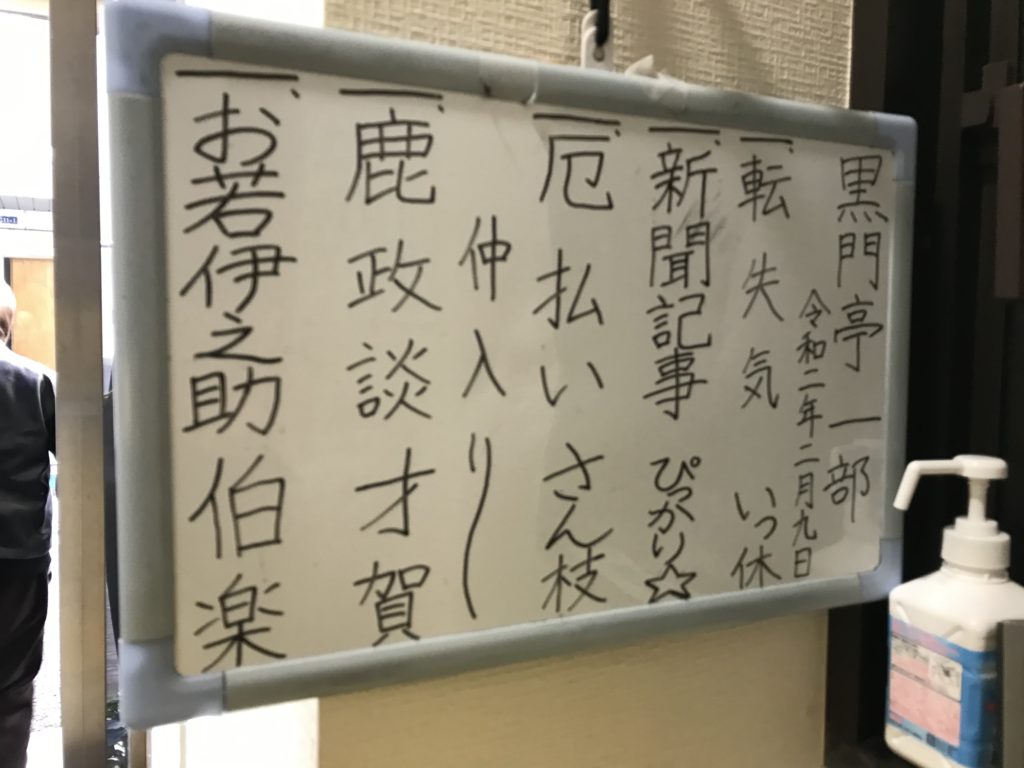 黒門亭 一部
令和二年二月九日
一、転失気 いっ休
一、新聞記事 ぴっかり☆
一、厄払い さん枝
仲入り
一、鹿政談 才賀
一、お若伊之助 伯楽